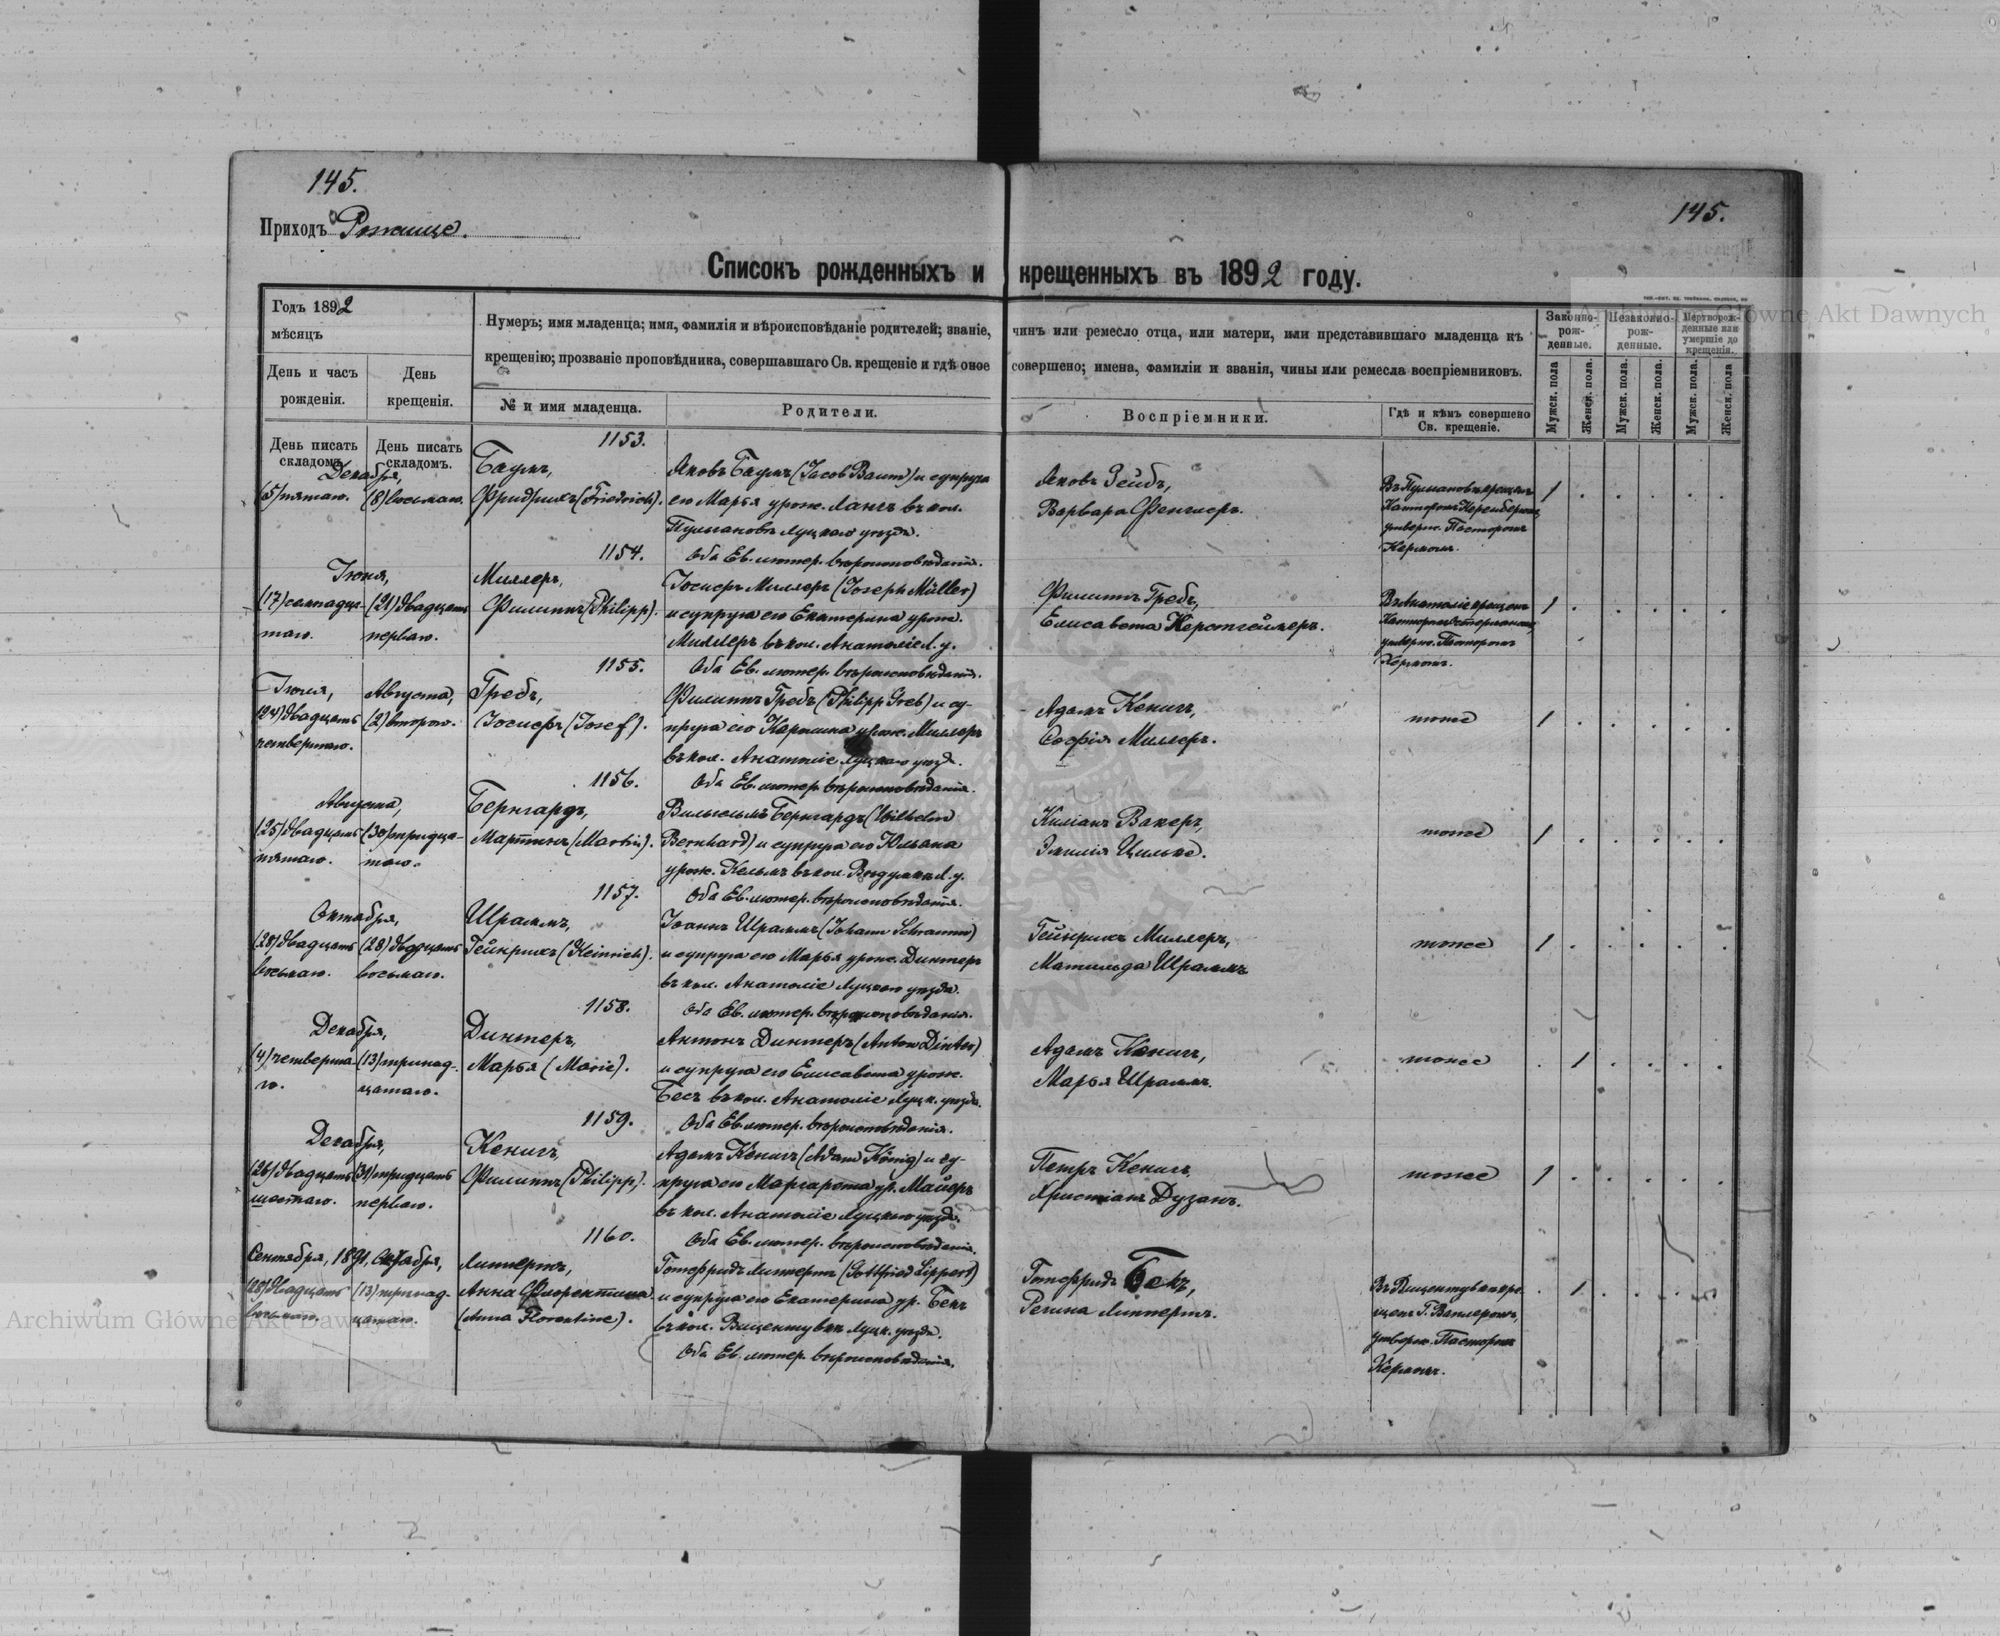 145.
145.
Приходъ Рожище.
Списокъ рожденныхъ и крещенныхъ въ 1892 году.
Годъ 1892
мѣсяцъ
День и часъ рожденія.
День крещенія.
Нумеръ; имя младенца; имя, фамилія и вѣроисповѣданіе родителей; званіе, чинъ или ремесло отца, или матери, или представившаго младенца къ
крещенію; прозваніе проповѣдника, совершавшаго Св. крещеніе и гдѣ оное совершено; имена, фамиліи и званія, чины или ремесла воспріемниковъ.
№ и имя младенца.
Родители.
Воспріемники.
Гдѣ и кѣмъ совершено Св. крещеніе.
Законно-рожденные.
Незаконно-рожденные.
Мертворожденные или умершіе до крещенія.
Мужск. пола
Женск. пола.
Мужск. пола.
Женск. пола.
Мужск. пола.
Женск. пола
День писать складомъ.
День писать складомъ.
1153.
Декабря,
(5) пятаго.
(8) восьмаго.
Баумъ,
Фридрихъ (Friedrich).
Яковъ Баумъ (Jacob Baum) и супруга
его Марья урож. Лангъ въ кол.
Пулгановъ Луцкаго уѣзда.
Оба Ев. лютер. вѣроисповѣданія.
Яковъ Зейбъ,
Варвара Фенглеръ.
утверж. Пасторомъ
Керномъ.
1
1154.
Іюня,
(17) семнадца-
таго.
(21) двадцать
перваго.
Миллеръ,
Филиппъ (Philipp).
Іосифъ Миллеръ (Joseph Müller)
и супруга его Екатерина урож.
Миллеръ въ кол. Анатоліе Л. у.
Оба Ев. лютер. вѣроисповѣданія.
Филиппъ Гребъ,
Елисавета Керстгеймеръ.
Въ Анатоліе крещенъ
утверж. Пасторомъ
Керномъ.
1
1155.
Іюля,
(24) двадцать
четвертаго.
Августа,
(2) втораго.
Гребъ,
Іосифъ (Josef).
Филиппъ Гребъ (Philipp Greb) и су-
пруга его Каролина урож. Миллеръ
въ кол. Анатоліе Луцкаго уѣзд.
Оба Ев. лютер. вѣроисповѣданія.
Адамъ Кенигъ,
Софія Миллеръ.
тоже
1
1156.
Августа,
(25) двадцать
пятаго.
(30) тридца-
таго.
Бернгардъ,
Мартинъ (Martin).
Вильгельмъ Бернгардъ (Wilhelm
Bernhard) и супруга его Юльяна
урож. Кельмъ въ кол. Выдумка Л. у.
Оба Ев. лютер. вѣроисповѣданія.
Киліанъ Вакеръ,
Эмилія Цильке.
тоже
1
1157.
Октября,
(28) двадцать
восьмаго.
(28) двадцать
восьмаго.
Шраммъ,
Гейнрихъ (Heinrich).
Іоаннъ Шраммъ (Johann Schramm)
и супруга его Марья урож. Динтеръ
въ кол. Анатоліе Луцкаго уѣзда.
Оба Ев. лютер. вѣроисповѣданія.
Гейнрихъ Миллеръ,
Матильда Шраммъ
тоже
1
1158.
Декабря,
(4) четверта-
го.
(13) тринад-
цатаго.
Динтеръ,
Марья (Marie).
Антонъ Динтеръ (Anton Dinter)
и супруга его Елисавета урож.
Бесъ въ кол. Анатоліе Луцк. уѣзда.
Оба Ев. лютер. вѣроисповѣданія.
Адамъ Кенигъ,
Марья Шраммъ.
тоже
1
1159.
Декабря,
(26) двадцать
шестаго.
(31) тридцать
перваго.
Кенигъ,
Филиппъ (Philipp).
Адамъ Кенигъ (Adam König) и су-
пруга его Маргарета ур. Майеръ
въ кол. Анатоліе Луцкаго уѣзда.
Оба Ев. лютер. вѣроисповѣданія.
Петръ Кенигъ,
Христіанъ Дузанъ.
тоже
1
1160.
Сентября, 1891, Октября,
(28) двадцать
восьмаго.
(13) тринад-
цатаго.
Липпертъ,
Анна Флорентина
(Anna Florentine).
Готфридъ Липпертъ (Gottfried Lippert)
и супруга его Екатерина ур. Бекъ
въ кол. Вицентувкѣ Луцк. уѣзда.
Оба Ев. лютер. вѣроисповѣданія.
Готфридъ Бекъ,
Регина Липпертъ.
Въ Вицентувкѣ кре-
щенъ Г.
утверж. Пасторомъ
Керномъ.
1
Archiwum Główne Akt Dawnych
Główne Akt Dawnych